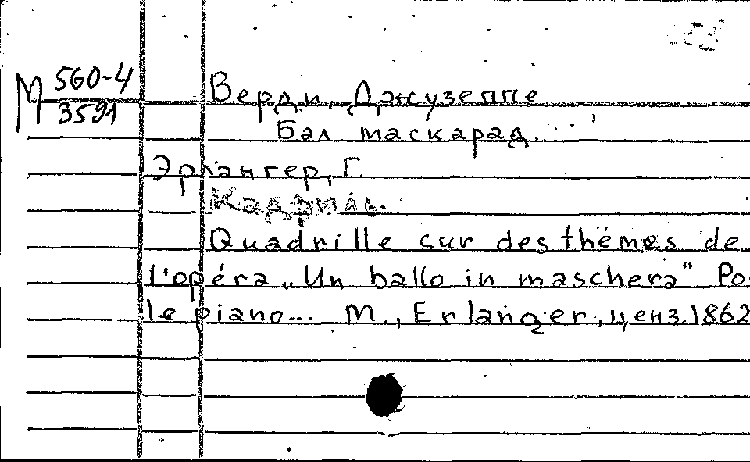 М 560-4
3591
Верди, Джузеппе
Бал маскарад.
Эрлангер, Г.
Кадриль.
Quadrille sur des thémes de
l'opéra „Un ballo in maschera" Po
le piano... М., Erlanger, ценз. 1862